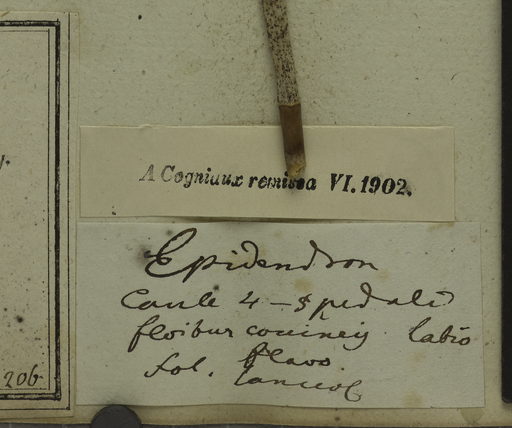 A Cogniaux remissa VI. 1902.
Epidendron
Caule 4-5 pedali
floribus coccineis labio
flavo.
fol. lanceol
206